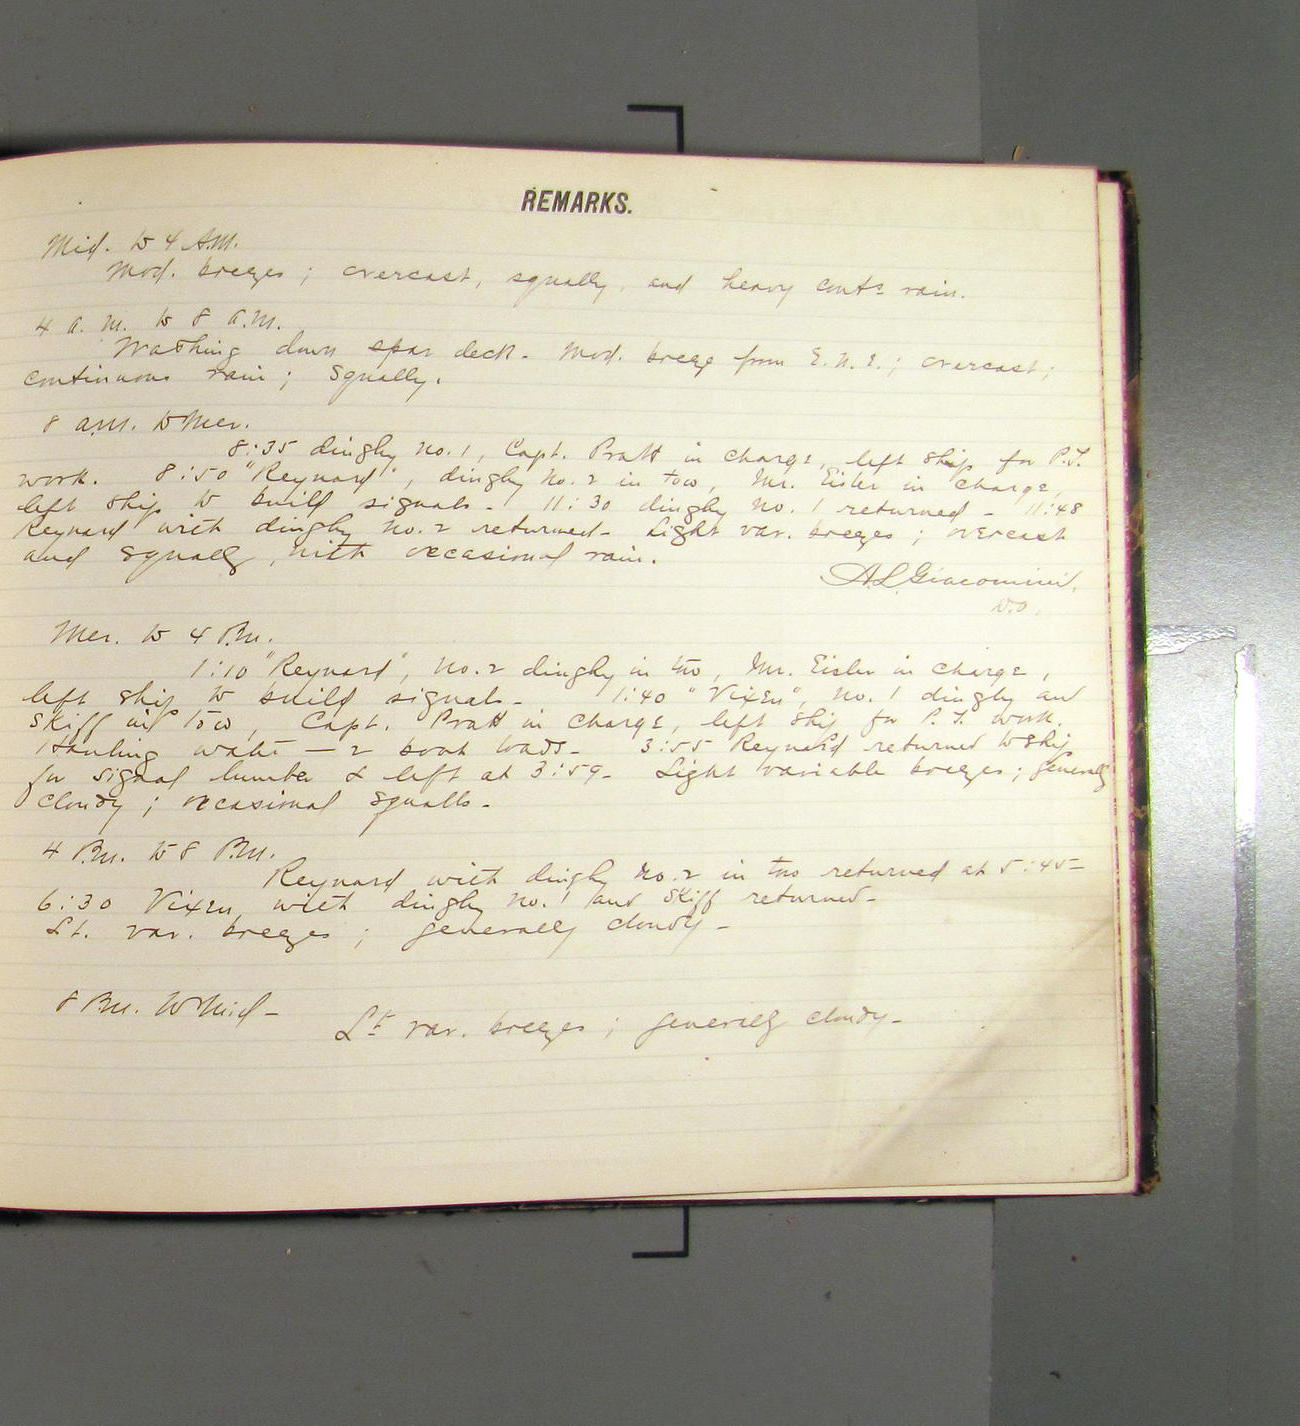 REMARKS.
Mid. to 4 A.M.
Mod. breezes; overcast, squally, and heavy conts rain.
4 a.m. to 8 a.m.
Washing down spar deck. Mod. breeze from E.N.E.; overcast;
continuous rain; squally.
8 a.m. to Mer.
8:35 dinghy no. 1, Capt. Pratt in charge, left ship for P.T.
work. 8:50 "Reynard", dinghy No. 2 in tow, Mr. Eisler in charge,
left ship to build signals - 11:30 dinghy no. 1 returned - 11:48
Reynard with dinghy no. 2 returned - Light var. breezes; overcast
and squally, with occasional rain.
A.L. Giacomini,
W.O.
Mer. to 4 P.m.
1:10 "Reynard", no. 2 dinghy in tow, Mr. Eisler in charge,
left ship to build signals - 1:40 "Vixen", no. 1 dinghy and
skiff in tow, Capt. Pratt in charge, left ship for P.T. work.
Hauling water — 2 boat loads - 3:55 Reynard returned to ship
for signal lumber & left at 3:59 - Light variable breezes; generally
cloudy; occasional squalls -
4 P.m. to 8 P.m.
Reynard with dinghy no. 2 in tow returned at 5:45 -
6:30 Vixen, with dinghy no. 1 and skiff returned -
Lt. var. breezes; generally cloudy -
8 P.m. to Mid -
Lt var. breezes; generally cloudy -